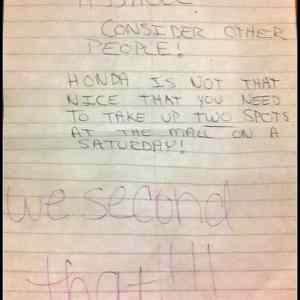 CONSIDER OTHER
PEOPLE!
HONDA IS NOT THAT
NICE THAT YOU NEED
TO TAKE UP TWO SPOTS
AT THE MALL ON A
SATURDAY!
we second
that!!!!